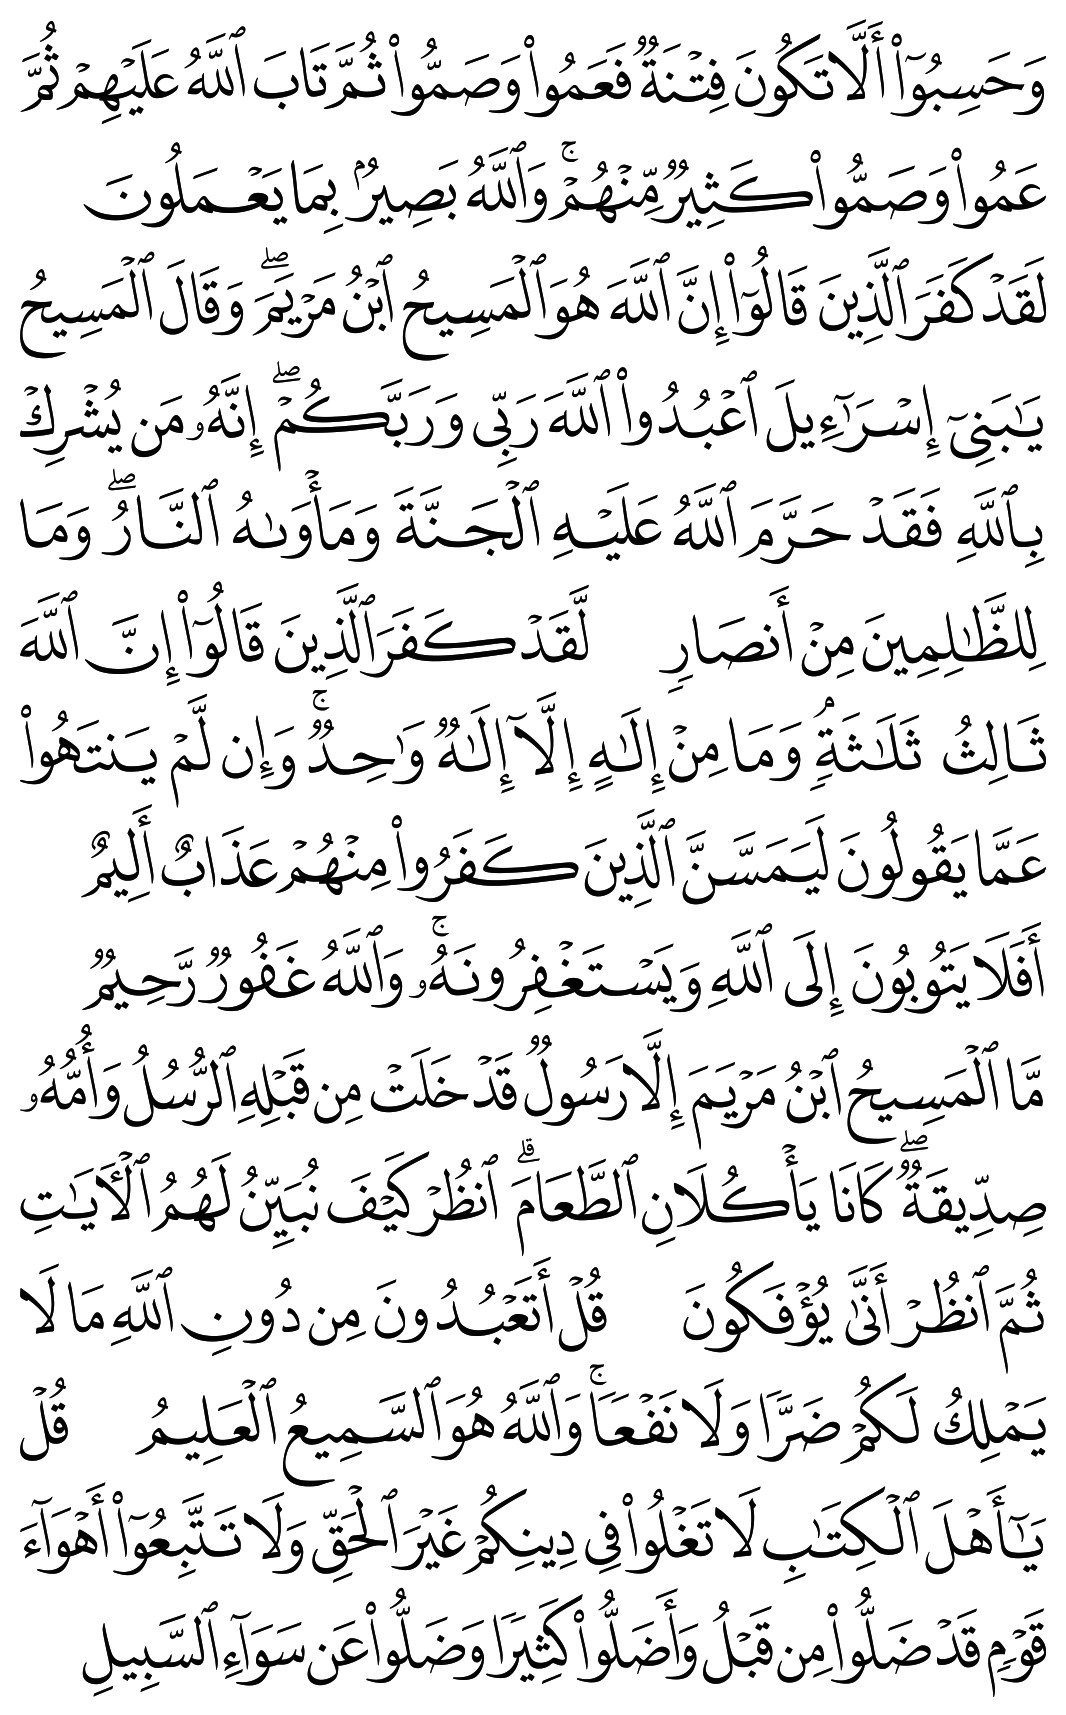 وَحَسِبُوٓا۟ أَلَّا تَكُونَ فِتْنَةٌ فَعَمُوا۟ وَصَمُّوا۟ ثُمَّ تَابَ ٱللَّهُ عَلَيْهِمْ ثُمَّ
عَمُوا۟ وَصَمُّوا۟ كَثِيرٌ مِّنْهُمْ ۚ وَٱللَّهُ بَصِيرٌۢ بِمَا يَعْمَلُونَ
لَقَدْ كَفَرَ ٱلَّذِينَ قَالُوٓا۟ إِنَّ ٱللَّهَ هُوَ ٱلْمَسِيحُ ٱبْنُ مَرْيَمَ ۖ وَقَالَ ٱلْمَسِيحُ
يَـٰبَنِىٓ إِسْرَٰٓءِيلَ ٱعْبُدُوا۟ ٱللَّهَ رَبِّى وَرَبَّكُمْ ۖ إِنَّهُۥ مَن يُشْرِكْ
بِٱللَّهِ فَقَدْ حَرَّمَ ٱللَّهُ عَلَيْهِ ٱلْجَنَّةَ وَمَأْوَىٰهُ ٱلنَّارُ ۖ وَمَا
لِلظَّـٰلِمِينَ مِنْ أَنصَارٍ لَّقَدْ كَفَرَ ٱلَّذِينَ قَالُوٓا۟ إِنَّ ٱللَّهَ
ثَالِثُ ثَلَـٰثَةٍۢ وَمَا مِنْ إِلَـٰهٍ إِلَّآ إِلَـٰهٌ وَٰحِدٌ ۚ وَإِن لَّمْ يَنتَهُوا۟
عَمَّا يَقُولُونَ لَيَمَسَّنَّ ٱلَّذِينَ كَفَرُوا۟ مِنْهُمْ عَذَابٌ أَلِيمٌ
أَفَلَا يَتُوبُونَ إِلَى ٱللَّهِ وَيَسْتَغْفِرُونَهُۥ ۚ وَٱللَّهُ غَفُورٌ رَّحِيمٌ
مَّا ٱلْمَسِيحُ ٱبْنُ مَرْيَمَ إِلَّا رَسُولٌ قَدْ خَلَتْ مِن قَبْلِهِ ٱلرُّسُلُ وَأُمُّهُۥ
صِدِّيقَةٌ ۖ كَانَا يَأْكُلَانِ ٱلطَّعَامَ ۗ ٱنظُرْ كَيْفَ نُبَيِّنُ لَهُمُ ٱلْـَٔايَـٰتِ
ثُمَّ ٱنظُرْ أَنَّىٰ يُؤْفَكُونَ قُلْ أَتَعْبُدُونَ مِن دُونِ ٱللَّهِ مَا لَا
يَمْلِكُ لَكُمْ ضَرًّا وَلَا نَفْعًا ۚ وَٱللَّهُ هُوَ ٱلسَّمِيعُ ٱلْعَلِيمُ قُلْ
يَـٰٓأَهْلَ ٱلْكِتَـٰبِ لَا تَغْلُوا۟ فِى دِينِكُمْ غَيْرَ ٱلْحَقِّ وَلَا تَتَّبِعُوٓا۟ أَهْوَآءَ
قَوْمٍ قَدْ ضَلُّوا۟ مِن قَبْلُ وَأَضَلُّوا۟ كَثِيرًا وَضَلُّوا۟ عَن سَوَآءِ ٱلسَّبِيلِ